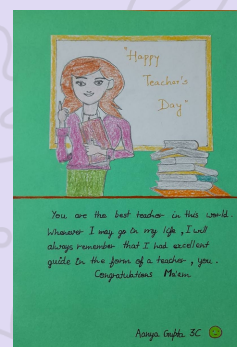 "Happy
Teacher's
Day"
You are the best teacher in this world.
Whenever I may go in my life, I will
always remember that I had excellent
guide in the form of a teacher, you.
Congratulations Ma'em
Aanya Gupta 3C